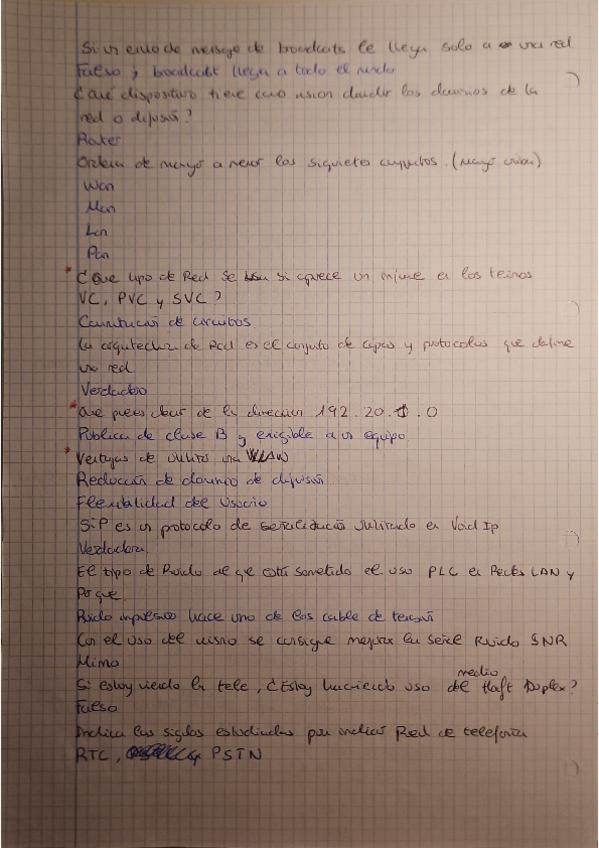 Si un envio de mensaje de broadcats le llega solo a una red
Falso, broadcabt llega a todo el mundo
¿Qué dispositivo tiene como mision dividir los dominios de la
red o difusión?
Router
Ordena de mayor a menor los siguietes conceptos. (mayor)
Wan
Man
Lan
Pan
* ¿Que tipo de Red se usa si aparece un informe en los teminos
VC, PVC y SVC?
Conmutución de circuitos
La arquitectura de Red es el conjuto de capas y protocolos que define
una red
Verdadero
* Que puees decir de la direccion 192.20.1.0
Publica de clase B y exigible a un equipo
* Ventajas de utilizar una VLAN
Reducción de dominio de difusión
Flexibilidad del Usuario
SIP es un protocolo de señalización utilizado en Void Ip
Verdadera
El tipo de Ruido al qe está sometido el uso PLC en Redes LAN y
Por que
Ruido impulsivo hace uno de los cable de tensión
Con el uso del mismo se consigue mejorar la señal Ruido SNR
Mimo
Si estoy viendo la tele, ¿Estoy haciendo uso del medio Halft Duplex?
Falso
Indica las siglas estudiadas para indicar Red de telefonia
RTC, PSTN